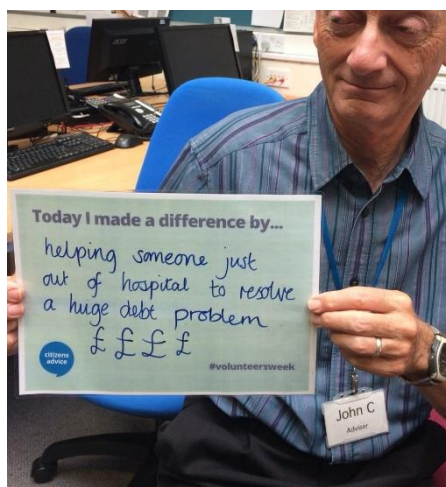 Today I made a difference by...
helping someone just
out of hospital to resolve
a huge debt problem
£ £ £ £
citizens
advice
#volunteersweek
John C
Adviser